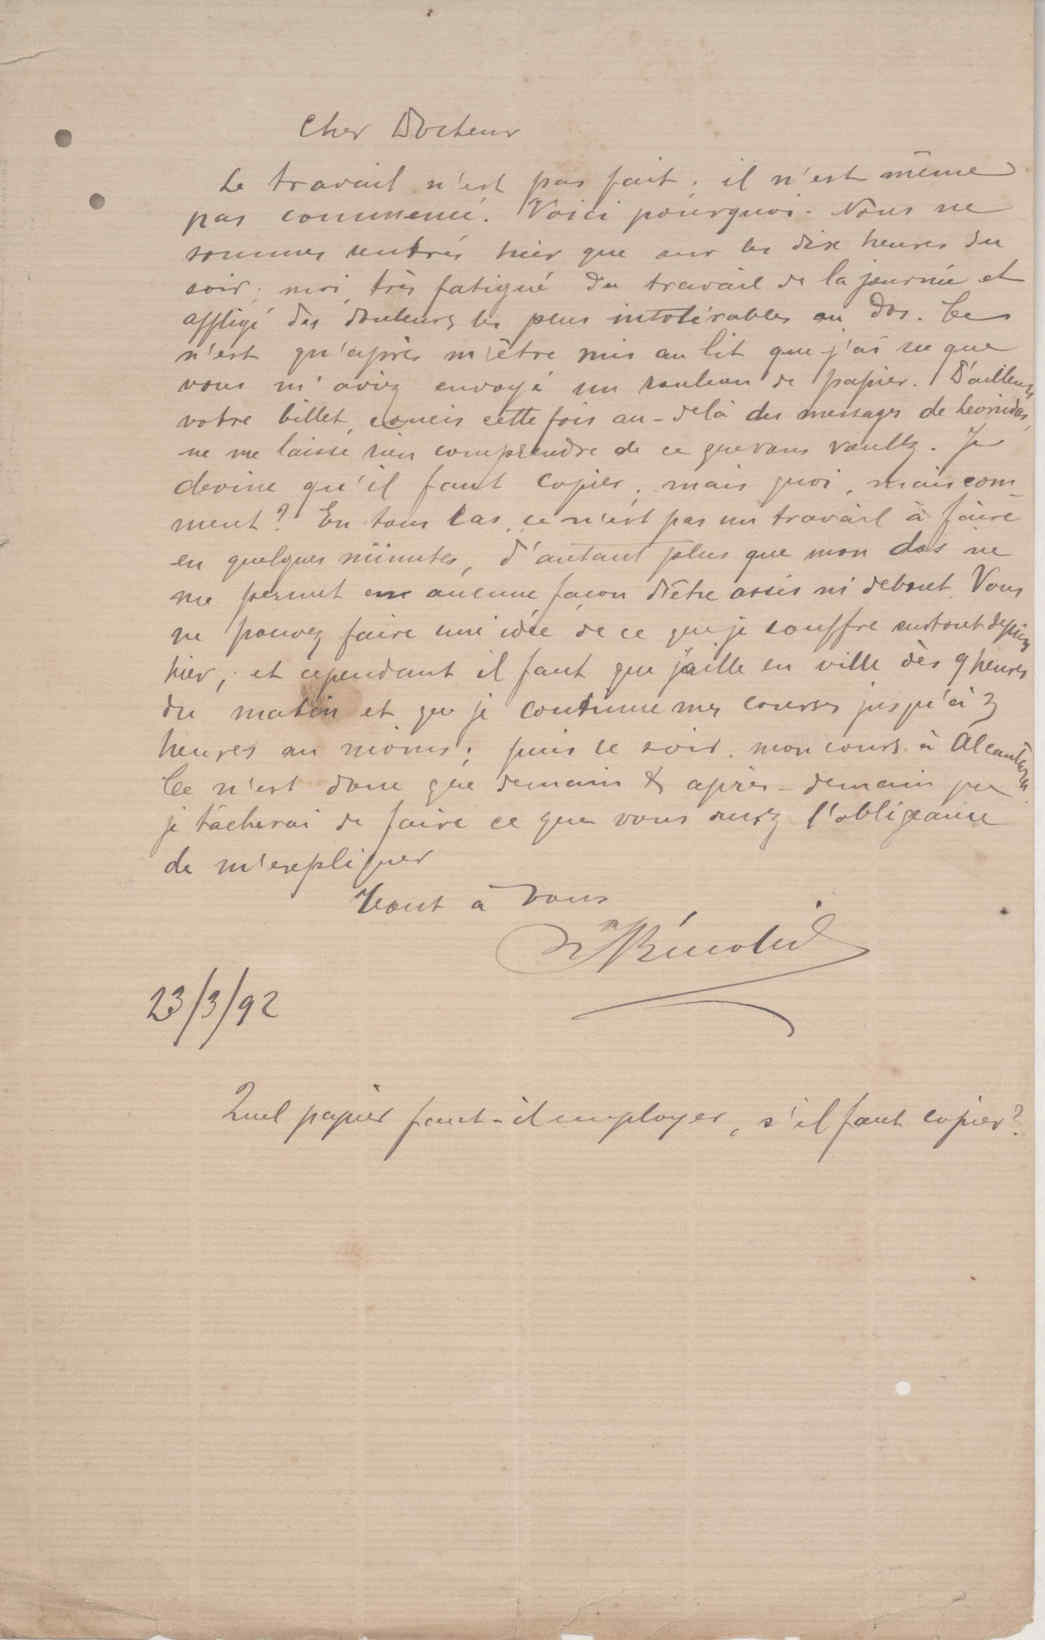 Cher Docteur
Le travail n'est pas fait; il n'est même
pas commencé. Voici pourquoi. Nous ne
sommes rentrés hier que sur les dix heures du
soir; moi, très fatigué du travail de la journée et
affligé des douleurs les plus intolérables au dos. Ce
n'est qu'après m'être mis au lit que j'ai vu que
vous m'aviez envoyé un rouleau de papier. D'ailleurs,
votre billet, concis cette fois au-delà des messages de Léonidas,
ne me laisse rien comprendre de ce que vous voulez. Je
devine qu'il faut copier; mais quoi, mais com-
ment? En tous cas, ce n'est pas un travail à faire
en quelques minutes, d'autant plus que mon dos ne
me permet en aucune façon d'être assis ni debout. Vous
ne pouvez faire une idée de ce que je souffre surtout depuis
hier; et cependant il faut que j'aille en ville dès 9 heures
du matin et que je continue mes courses jusqu'à 3
heures au moins; puis le soir mon cours à Alcantara.
Ce n'est donc que demain & après-demain que
je tâcherai de faire ce que vous aurez l'obligeance
de m'expliquer
Tout à vous
23/3/92
Quel papier faut-il employer, s'il faut copier?